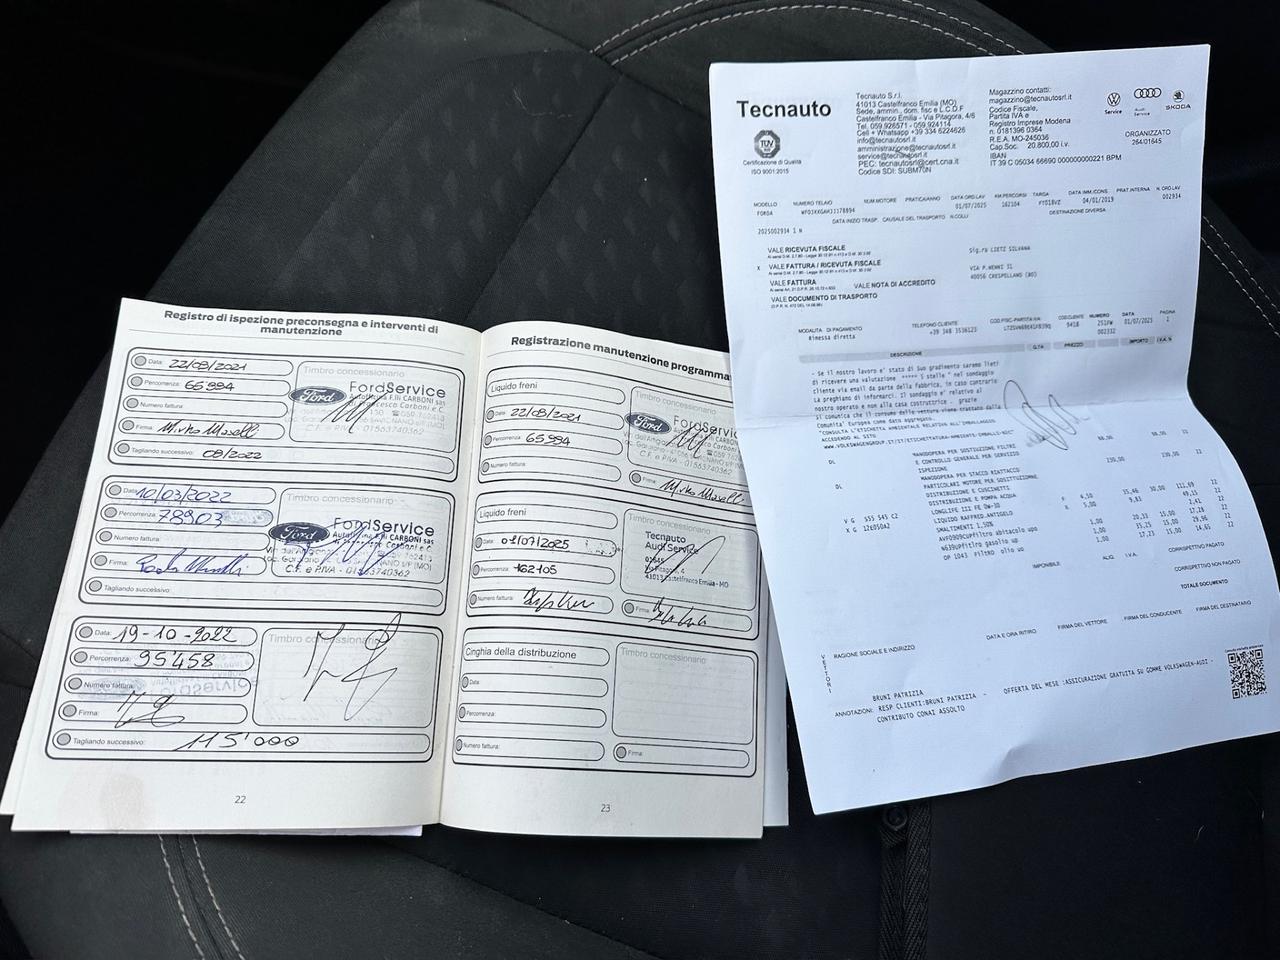 Registro di ispezione preconsegna e interventi di
manutenzione
Data: 22/09/2021
Percorrenza: 65994
Numero fattura:
Firma: Mirko Maselli
Tagliando successivo: 09/2022
Timbro concessionario
Ford
FordService
Autofficina F.lli CARBONI sas
C.F. e P.IVA - 01563740362
Data: 10/03/2022
Percorrenza: 78903
Numero fattura:
Firma:
Tagliando successivo:
Timbro concessionario
Ford
FordService
Autofficina F.lli CARBONI sas
C.F. e P.IVA - 01563740362
Data: 19-10-2022
Percorrenza: 95'458
Numero fattura:
Firma:
Tagliando successivo: 115'000
Timbro concessionario
22
Registrazione manutenzione programma
Liquido freni
Data: 22/09/2021
Percorrenza: 65.994
Numero fattura:
Timbro concessionario
Ford
FordService
Firma: Mirko Maselli
Liquido freni
Data: 01/07/2025
Percorrenza: 162105
Numero fattura:
Tecnauto
Audi Service
01645
Via Pitagora, 4
41013 Castelfranco Emilia - MO
Firma:
Cinghia della distribuzione
Data:
Percorrenza:
Numero fattura:
Timbro concessionario
Firma:
23
Tecnauto
TÜV
Certificazione di Qualità
ISO 9001:2015
Tecnauto S.r.l.
41013 Castelfranco Emilia (MO)
Sede, ammin., dom. fisc e L.C.D.F
Castelfranco Emilia - Via Pitagora, 4/6
Tel. 059.926571 - 059.924114
Cell + Whatsapp +39 334 6224626
info@tecnautosrl.it
amministrazione@tecnautosrl.it
service@tecnautosrl.it
PEC: tecnautosrl@cert.cna.it
Codice SDI: SUBM70N
Magazzino contatti:
magazzino@tecnautosrl.it
Codice Fiscale,
Partita IVA e
Registro Imprese Modena
n. 0181396 0364
R.E.A. MO-245036
Cap.Soc. 20.800,00 i.v.
IBAN
IT 39 C 05034 66690 000000000221 BPM
Service
Audi Service
SKODA
ORGANIZZATO
264/01645
MODELLO NUMERO TELAIO NUM.MOTORE PRATICA/ANNO DATA ORD.LAV KM.PERCORSI TARGA DATA IMM./CONS. PRAT.INTERNA N. ORD.LAV
FORDA WF03XXGAH3JJ78894 01/07/2025 162104 FT018VZ 04/01/2019 002934
DATA INIZIO TRASP. CAUSALE DEL TRASPORTO N.COLLI DESTINAZIONE DIVERSA
2025002934 1 N
VALE RICEVUTA FISCALE
X VALE FATTURA / RICEVUTA FISCALE
VALE FATTURA VALE NOTA DI ACCREDITO
VALE DOCUMENTO DI TRASPORTO
Sig.ra LIETI SILVANA
VIA P.NENNI 31
40056 CRESPELLANO (BO)
MODALITA' DI PAGAMENTO TELEFONO CLIENTE COD.FISC./PARTITA IVA COD.CLIENTE NUMERO DATA PAGINA
Rimessa diretta +39 348 3536123 9418 251FW 01/07/2025 1
002332
DESCRIZIONE Q.TA PREZZO IMPORTO I.V.A. %
- Se il nostro lavoro e' stato di Suo gradimento saremo lieti
di ricevere una valutazione ***** 5 stelle " nel sondaggio
cliente via email da parte della fabbrica, in caso contrario
La preghiamo di informarci. Il sondaggio e' relativo al
nostro operato e non alla casa costruttrice . grazie
si comunica che il consumo delle vetture viene trattato dalla
Comunita' Europea come dato aggregato.
"CONSULTA L'ETICHETTA AMBIENTALE RELATIVA ALL'IMBALLAGGIO
ACCEDENDO AL SITO
DL MANODOPERA PER SOSTITUZIONE FILTRI 88,00 88,00 22
E CONTROLLO GENERALE PER SERVIZIO
ISPEZIONE
DL MANODOPERA PER STACCO RIATTACCO 230,00 230,00 22
PARTICOLARI MOTORE PER SOSTITUZIONE
DISTRIBUZIONE E CUSCINETTI
DISTRIBUZIONE E POMPA ACQUA
V G S55 545 C2 LONGLIFE III FE 0W-30 6,50 35,46 30,00 22
LIQUIDO RAFFRED.ANTIGELO 5,00 9,83 49,15 22
SMALTIMENTI 1,50% 2,41 22
filtro abitacolo 1,00 20,33 15,00 17,28 22
filtro gasolio 1,00 35,25 15,00 29,96 22
OP 1043 Filtro olio 1,00 17,23 15,00 14,65 22
IMPONIBILE ALIQ. I.V.A. CORRISPETTIVO PAGATO
CORRISPETTIVO NON PAGATO
TOTALE DOCUMENTO
DATA E ORA RITIRO FIRMA DEL VETTORE FIRMA DEL CONDUCENTE FIRMA DEL DESTINATARIO
VETTORI
RAGIONE SOCIALE E INDIRIZZO
BRUNI PATRIZIA
ANNOTAZIONI: RESP CLIENTI:BRUNI PATRIZIA - OFFERTA DEL MESE :ASSICURAZIONE GRATUITA SU GOMME VOLKSWAGEN-AUDI -
CONTRIBUTO CONAI ASSOLTO